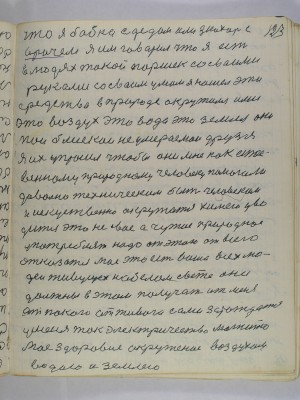 123
что я бабка с дедом или знахар с
врачем я им говорил что я ест
в людях такой паршек со своими
руками со своим умом я нашел эти
средства в природе окружали ими
это воздух это вода это земля они
мои близкаи неумераемаи друзя
я их упросил чтобы они мне как
природному человеку помогали
довольно техническим быт человеком
и искуственно окружатся химею
это не вае а чужие природное
употреблят надо от этого от всего
отказатся мае это ест ваше всех лю-
дей живущих на белом свете они
должны в этом получат от меня
от такого активого само
умеюя ток электричество магнито
Мае здоровие окружение воздухом
водою и землею